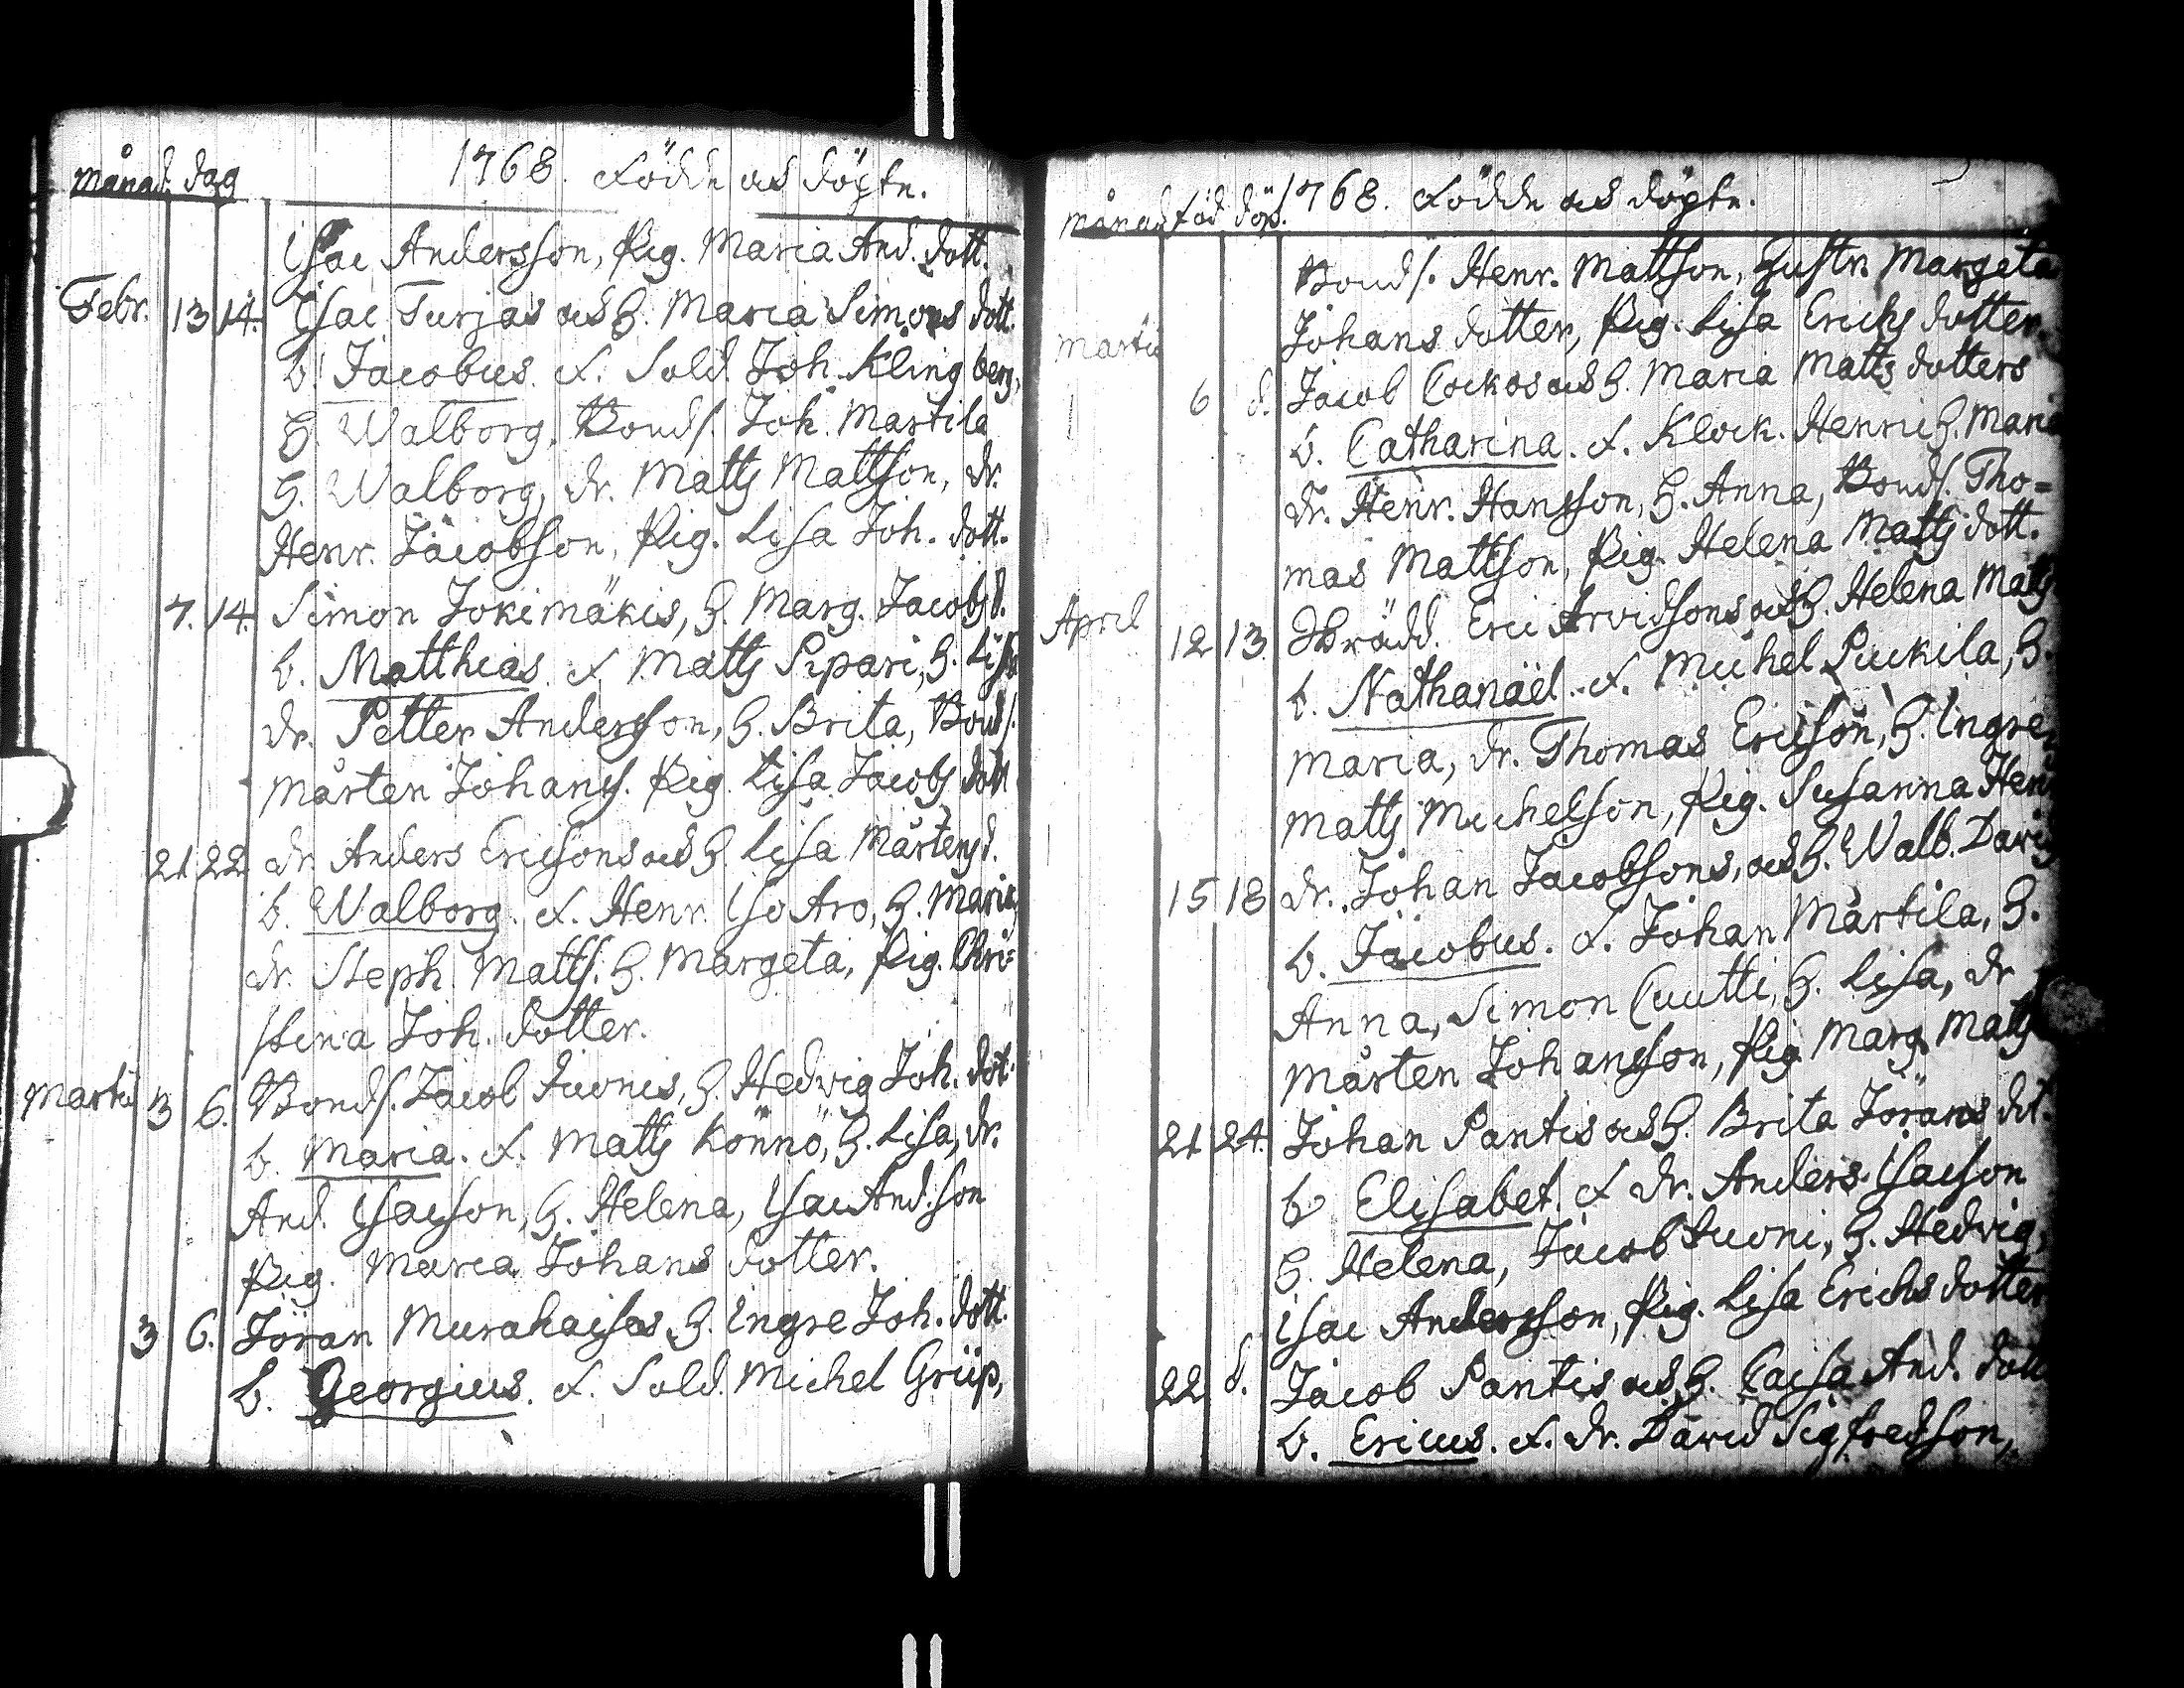 månad. dag 1768. Födde och döpte.
Isac Andersson, Pig. Maria And. dott.
Febr. 13 14. Isac Turjas och H. Maria Simons dott.
b. Jacobus. F. Sold. Joh. Klingberg,
H. Walborg, Bonds. Joh. Martila
H. Walborg, dr. Matts Mattson, dr.
Henr. Jacobson, Pig. Lisa Joh. dott.
7. 14. Simon Jokimäkis, H. Marg. Jacobsd.
b. Matthias. F. Matts Pipari, H. Lisa
dr. Petter Andersson, H. Brita, Bonds.
Mårten Johans. Pig. Lisa Jacobs dott
21 22 dr. Anders Ericsons och H. Lisa Mårtensd.
b. Walborg. F. Henr. Iso Aro, H. Maria,
dr. Steph. Matts. H. Margeta, Pig. Chri=
stina Joh. dotter.
Martii 3 6. Bonds. Jacob Juonis, H. Hedvig Joh. dot.
b. Maria. F. Matts Könnö, H. Lisa, dr.
And. Isacson, H. Helena, Isac And.son
Pig. Maria Johans dotter.
3 6. Jöran Murahaisas, H. Ingre Joh. dott.
b. Georgius. F. Sold. Michel Griip,
månad föd döp. 1768. Födde och döpte.
Bonds. Henr. Mattson, Hustr. Margeta
Johans dotter, Pig. Lisa Erichs dotter.
Martii
6 d. Jacob Cockos och H. Maria Matts dotters
b. Catharina. F. Klock. Henric H. Maria
dr. Henr. Hansson, H. Anna, Bonds. Tho=
mas Mattson, Pig. Helena Matts dott.
April 12 13 Eric Arvidsons och H. Helena Mats
b. Nathanaël. F. Michel Puckila, H.
Maria, dr. Thomas Ericson, H. Ingre,
Matts Michelson, Pig. Susanna Hen
15 18 dr. Johan Jacobsons, och H. Walb. Davids
b. Jacobus. F. Johan Martila, H.
Anna, Simon Cuutti, H. Lisa, dr
Mårten Johansson, Pig Marg. Mats
21 24. Johan Pantis och H. Brita Jörans dot.
b Elisabet. F dr. Anders Isacson
H. Helena, Jacob Juoni, H. Hedvig,
Isac Andersson, Pig. Lisa Erichs dotter
22 d. Jacob Pantis och H. Caisa And. dott
b. Ericus. F. dr. David Sigfredsson,